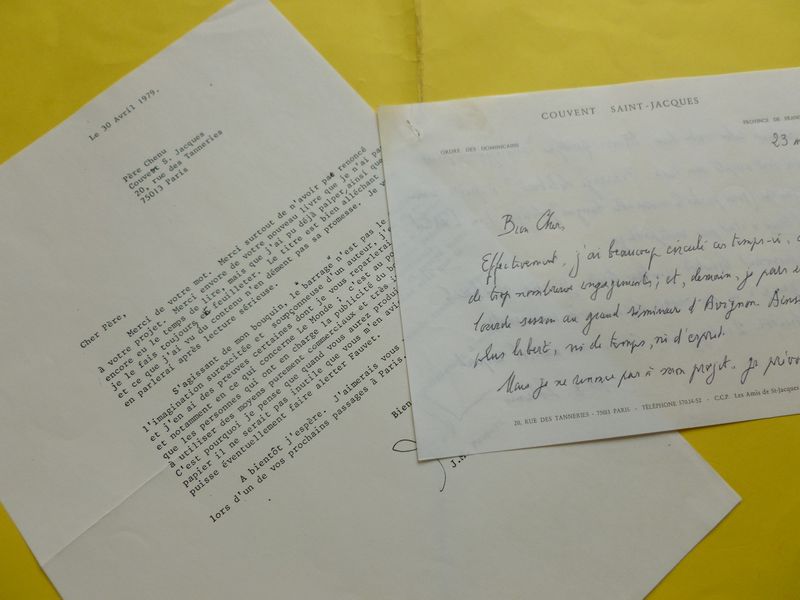 Le 30 Avril 1979.
Père Chenu
Couvent S. Jacques
20, rue des Tanneries
75013 Paris
Cher Père,
Merci de votre mot. Merci surtout de n'avoir pas renoncé
à votre projet. Merci envore de votre nouveau livre que je n'ai pa
encore eu le temps de lire, mais que j'ai pu déjà palper, ainsi que
je le fais toujours et feuilleter. Le titre est bien alléchant
et ce que j'ai vu du contenu n'en dément pas sa promesse. Je v
en parlerai après lecture sérieuse.
S'agissant de mon bouquin, le "barrage" n'est pas le
l'imagination surexcitée et soupçonneuse d'un auteur, j'
et j'en ai des preuves certaines dont je vous reparlerai
et notamment en ce qui concerne Le Monde ; c'est au po
que les personnes qui ont en charge la publicité du bo
à utiliser des moyens purement commerciaux et très
C'est pourquoi je pense que quand vous aurez produi
papier il ne serait pas inutile que vous m'en avi
puisse éventuellement faire alerter Fauvet.
A bientôt j'espère. J'aimerais vous
lors d'un de vos prochains passages à Paris.
Bien
COUVENT SAINT-JACQUES
ORDRE DES DOMINICAINS
PROVINCE DE FRANC
23
Bien Cher,
Effectivement, j'ai beaucoup circulé ces temps-ci,
de trop nombreux engagements; et, demain, je pars
lourde session au grand séminaire d'Avignon. Ainsi
plus libert, ni de temps, ni d'esprit.
Mais je ne renonce pas à mon projet. Je prévo
20, RUE DES TANNERIES - 75013 PARIS - TÉLÉPHONE 57034-52 - C.C.P. Les Amis de St-Jacques